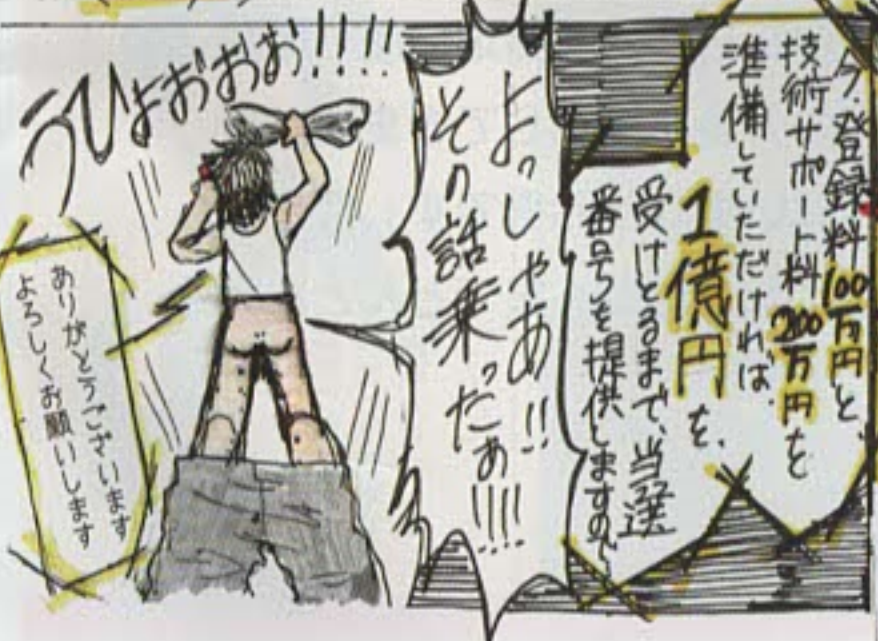 今、登録料100万円と、
技術サポート料200万円を
準備していただければ、
1億円を、
受けとるまで、当選
番号を提供しますので、
よっしゃあ!!
その話乗ったぁ!!!!
うひょおおおお!!!!
ありがとうございます
よろしくお願いします